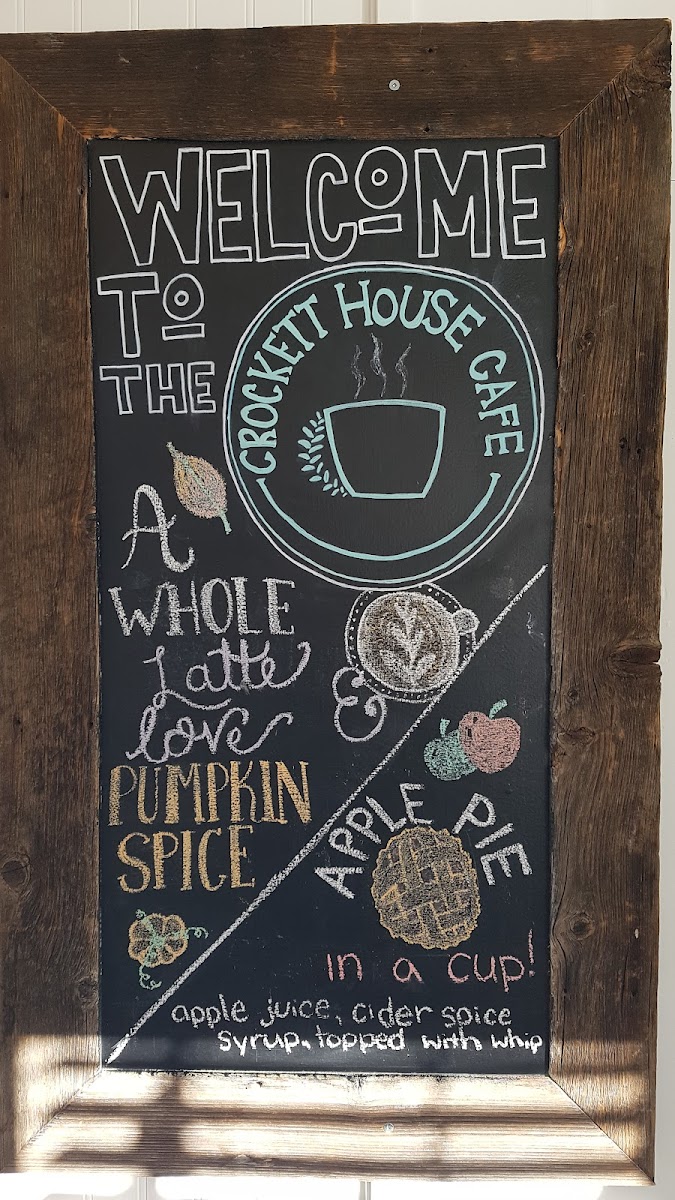 WELCOME
TO
THE
CROCKETT HOUSE CAFE
A
WHOLE
Latte
love
&
PUMPKIN
SPICE
APPLE PIE
in a cup!
apple juice, cider spice
syrup, topped with whip